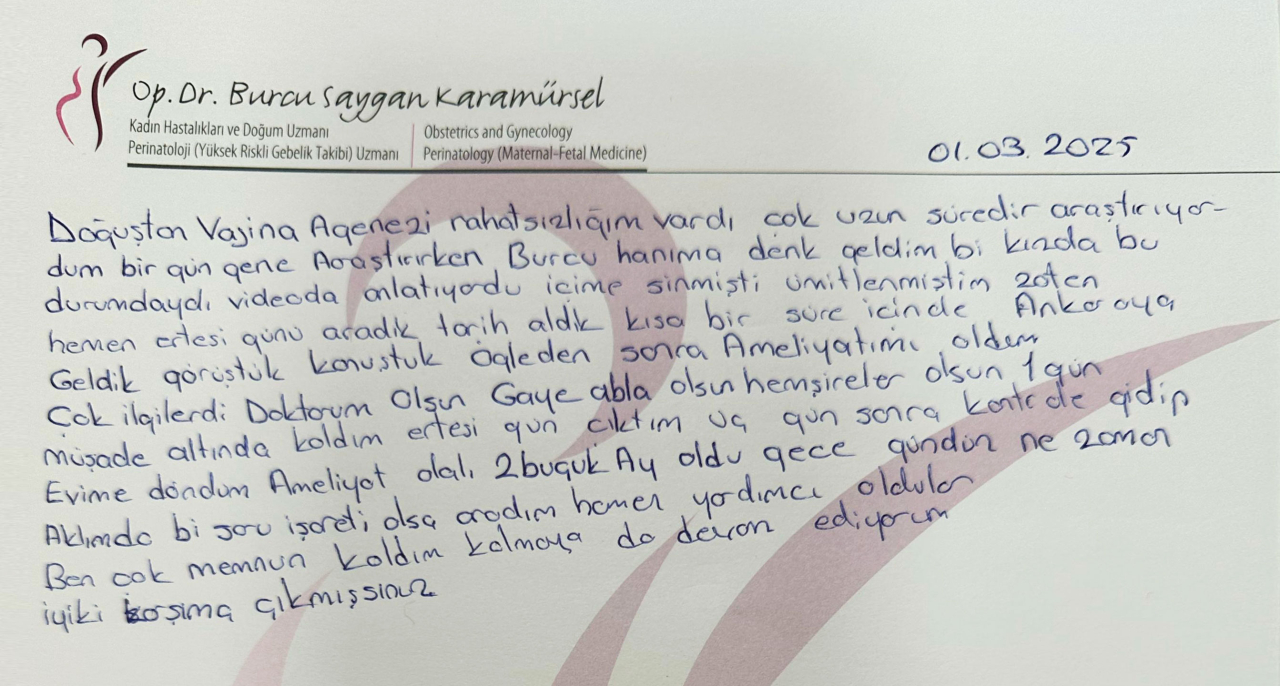 Op. Dr. Burcu Saygan Karamürsel
Kadın Hastalıkları ve Doğum Uzmanı
Perinatoloji (Yüksek Riskli Gebelik Takibi) Uzmanı
Obstetrics and Gynecology
Perinatology (Maternal-Fetal Medicine)
01.03.2025
Doğuştan Vajina Agenezi rahatsızlığım vardı çok uzun süredir araştırıyor-
dum bir gün gene Araştırırken Burcu hanıma denk geldim bi kızda bu
durumdaydı videoda anlatıyordu içime sinmişti ümitlenmiştim zaten
hemen ertesi günü aradık tarih aldık kısa bir süre içinde Ankaraya
Geldik görüştük konuştuk Öğleden sonra Ameliyatımı oldum
Çok ilgilerdi Doktorum Olsun Gaye abla olsun hemşireler olsun 1 gün
müşade altında kaldım ertesi gün çıktım üç gün sonra kontrole gidip
Evime döndüm Ameliyat olalı 2 buçuk Ay oldu gece gündün ne zaman
Aklımda bi soru işareti olsa aradım hemen yardımcı oldular
Ben çok memnun kaldım kalmaya da devam ediyorum
iyiki karşıma çıkmışsınız